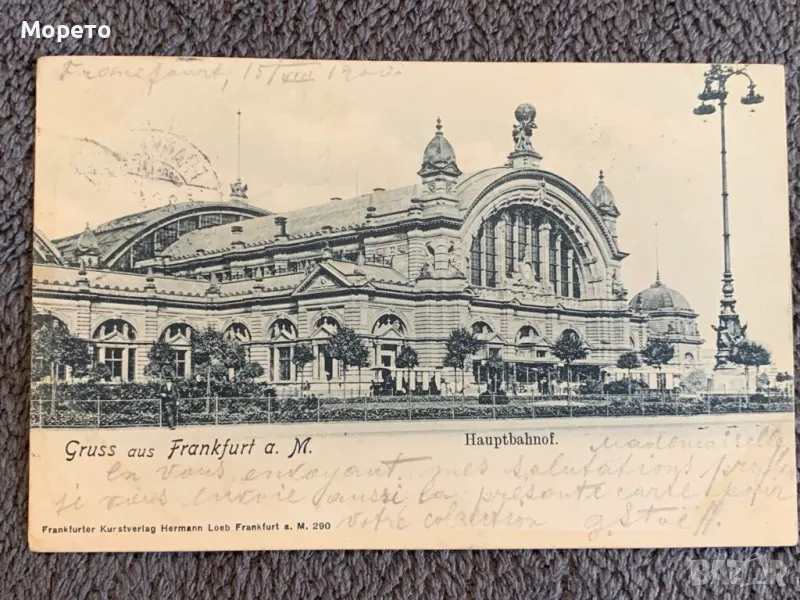 Морето
Francfourt, 15/VIII 190
Gruss aus Frankfurt a. M.
Hauptbahnof.
Mademoiselle
En vous envoyant mes salutations
je vous envoie aussi la présente carte pour
votre colection
Frankfurter Kunstverlag Hermann Loeb Frankfurt a. M. 290
BAZAR